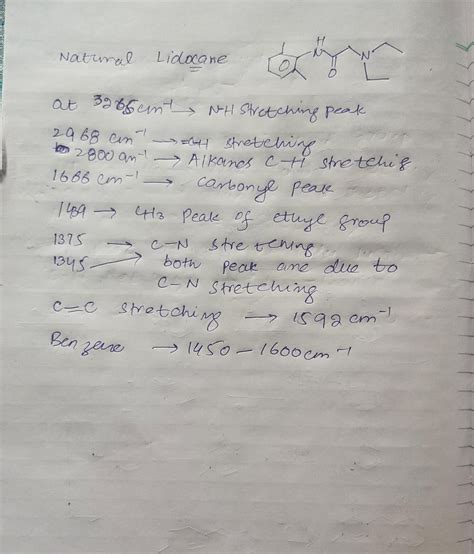 Natural Lidocane
H
N
N
O
O
at 3265 cm-1 → N-H Stretching peak
2968 cm-1 → stretching
2800 cm-1 → Alkanes C-H stretchig
1666 cm-1 → carbonyl peak
→ CH3 Peak of ethyl group
1375 → C-N Stretching
1345 → both peak are due to
C-N stretching
C=C stretching → 1592 cm-1
Benzene → 1450 - 1600 cm-1